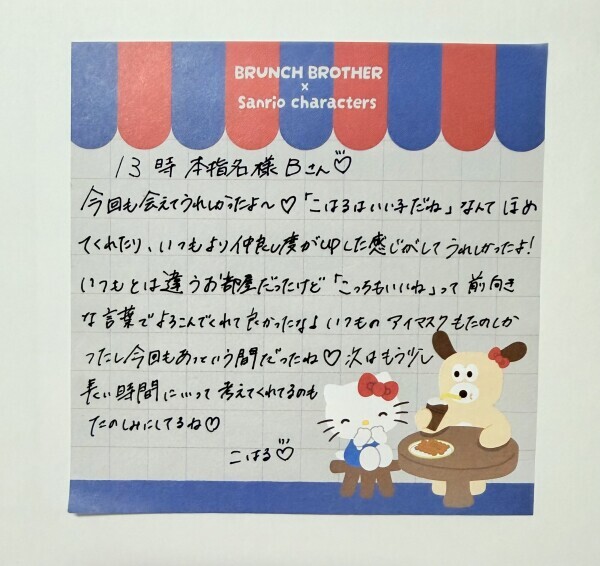 BRUNCH BROTHER
×
Sanrio characters
13時 本指名様 Bさん♡
今回も会えてうれしかったよ〜♡「こはるはいい子だね」なんて ほめ
てくれたり、いつもより仲良し度がUPした感じがしてうれしかったよ!
いつもとは違うお部屋だったけど「こっちもいいね」って 前向き
な言葉でよろこんでくれて良かったな♪いつものアイマスクもたのしか
ったし今回もあっという間だったね♡次はもう少し
長い時間にいって考えてくれてるのも
たのしみにしてるね♡
こはる♡